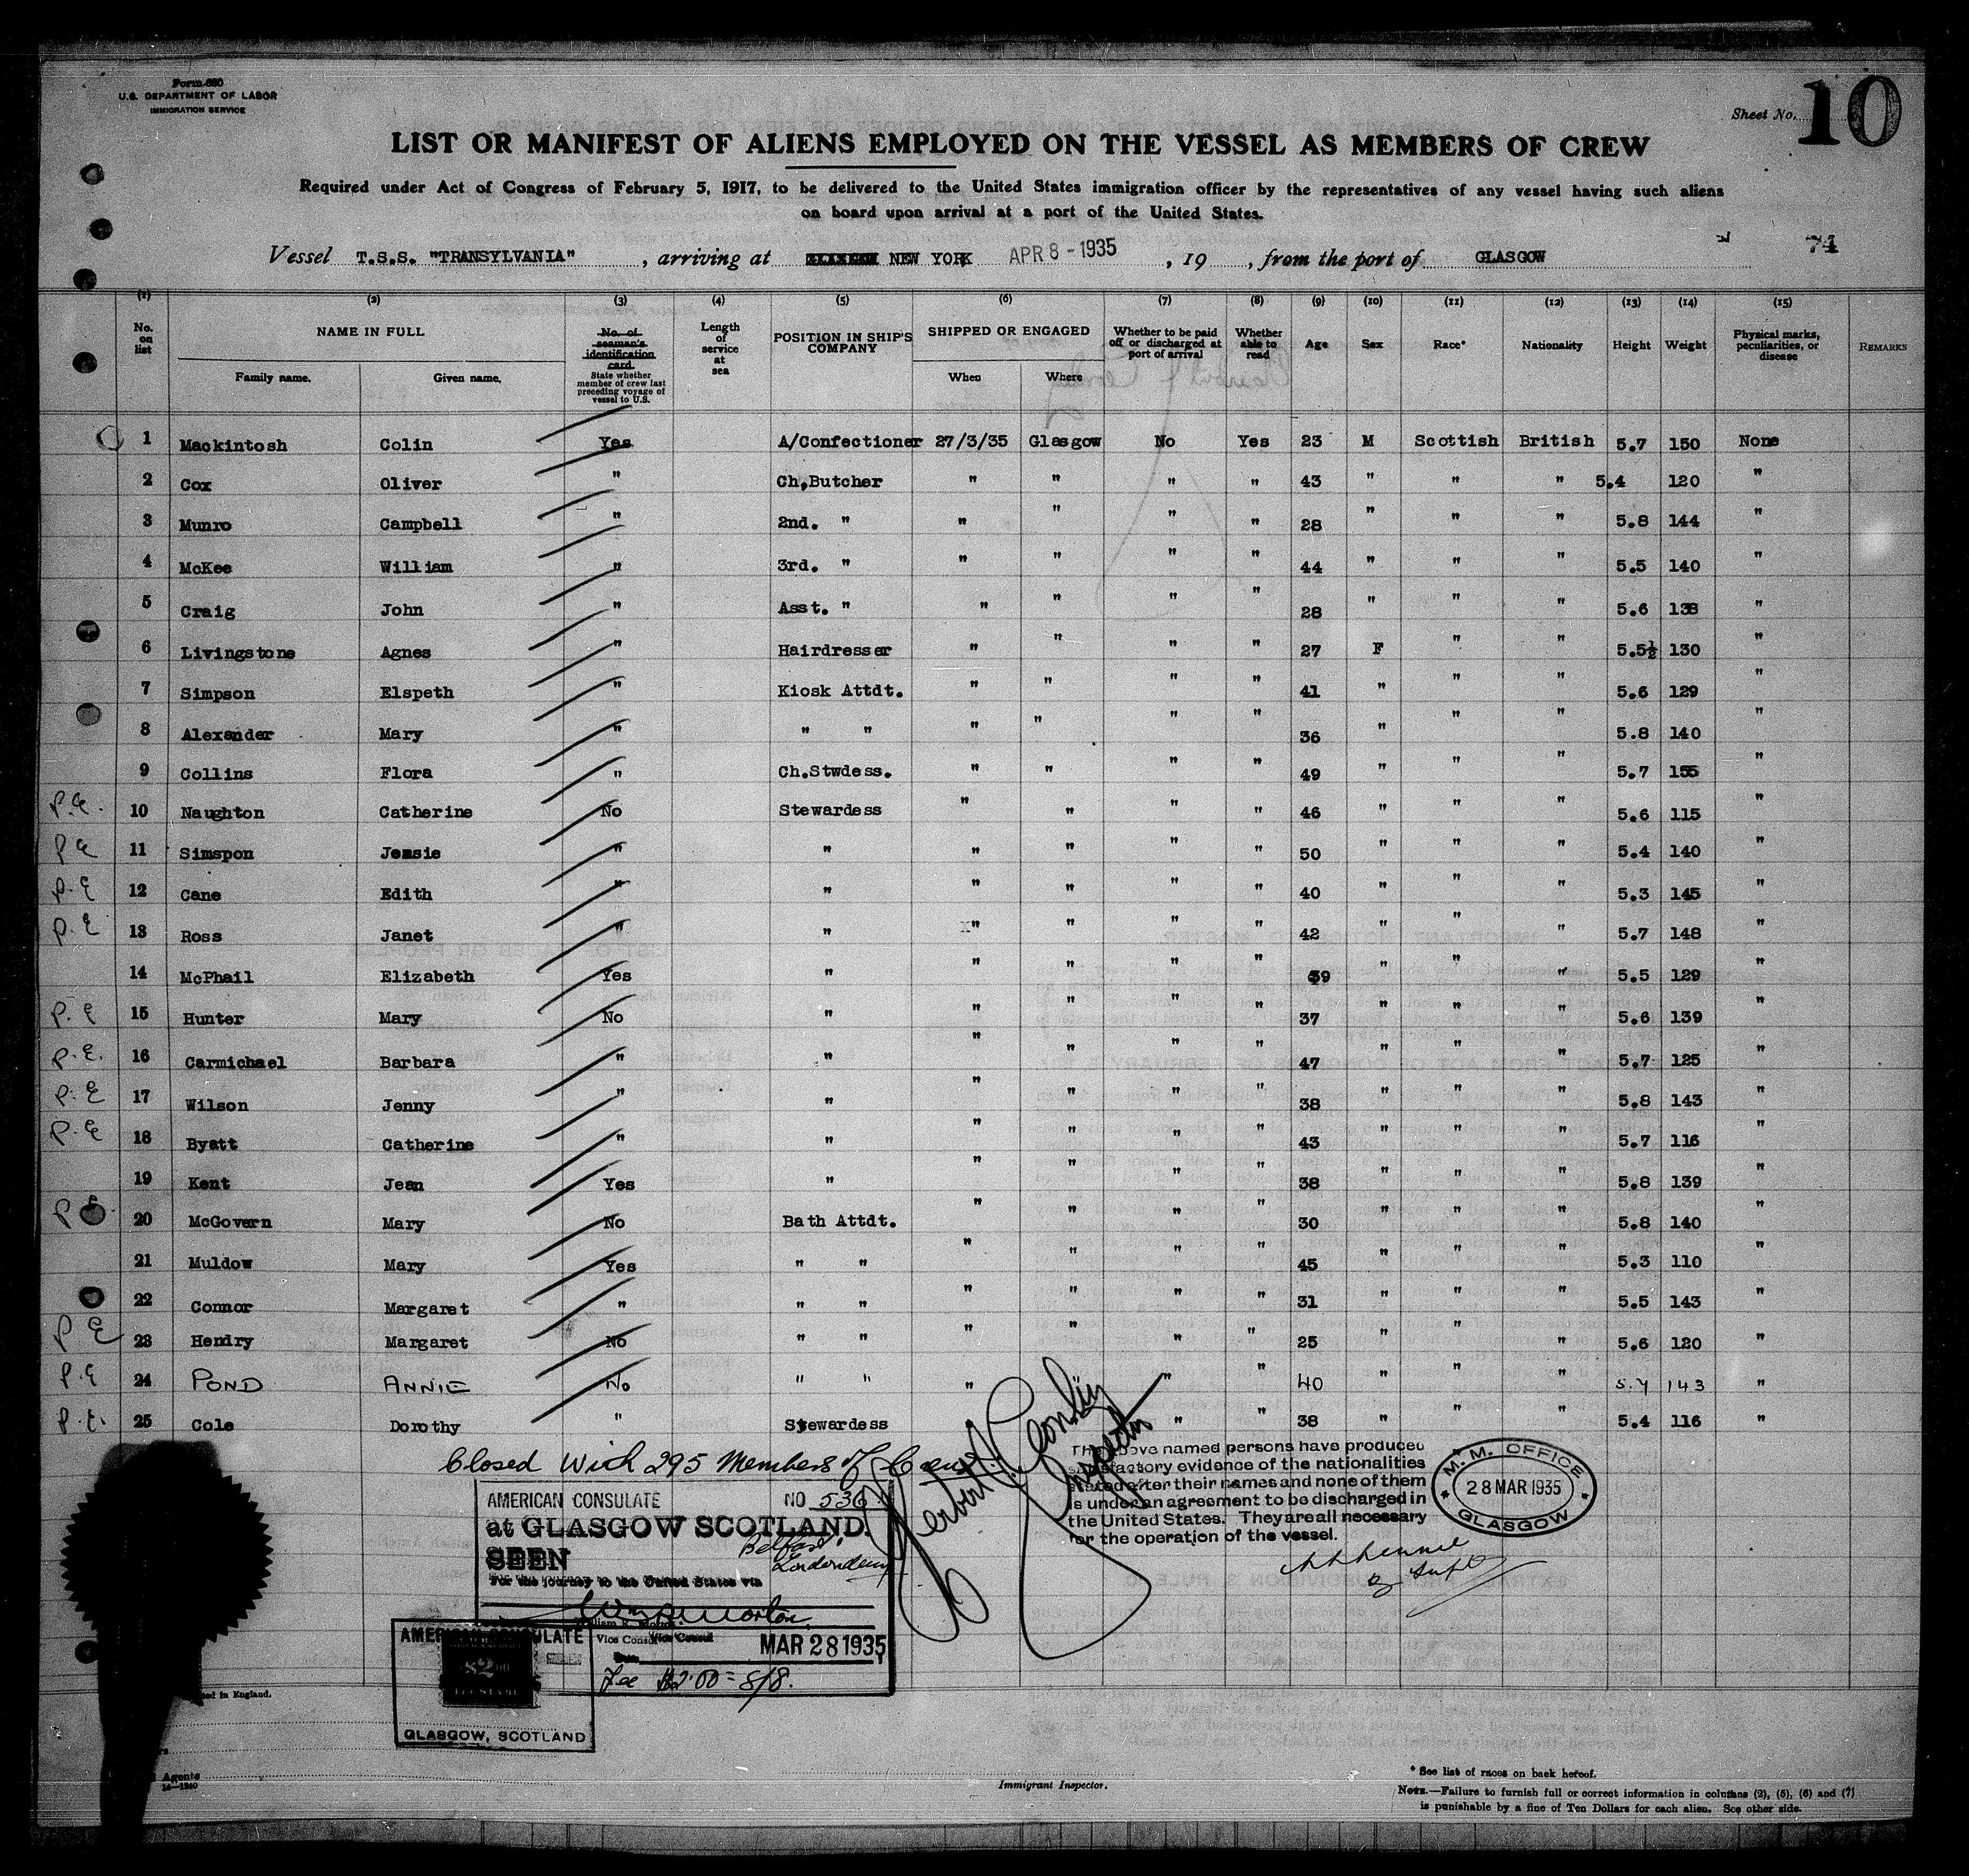 Form 680
U.S. DEPARTMENT OF LABOR
IMMIGRATION SERVICE
Sheet No. 10
LIST OR MANIFEST OF ALIENS EMPLOYED ON THE VESSEL AS MEMBERS OF CREW
Required under Act of Congress of February 5, 1917, to be delivered to the United States immigration officer by the representatives of any vessel having such aliens
on board upon arrival at a port of the United States.
74
Vessel T.S.S. "TRANSYLVANIA", arriving at GLASGOW NEW YORK APR 8 - 1935, 19 , from the port of GLASGOW
(1) (2) (3) (4) (5) (6) (7) (8) (9) (10) (11) (12) (13) (14) (15)
No. on list
NAME IN FULL
Family name. Given name.
No. of seaman's identification card.
State whether member of crew last preceding voyage of vessel to U.S.
Length of service at sea
POSITION IN SHIP'S COMPANY
SHIPPED OR ENGAGED
When Where
Whether to be paid off or discharged at port of arrival
Whether able to read
Age Sex Race* Nationality Height Weight
Physical marks, peculiarities, or disease
REMARKS
1 Mackintosh Colin Yes A/Confectioner 27/3/35 Glasgow No Yes 23 M Scottish British 5.7 150 None
2 Cox Oliver " Ch,Butcher " " " " 43 " " " 5.4 120 "
3 Munro Campbell " 2nd. " " " " " 28 " " " 5.8 144 "
4 McKee William " 3rd. " " " " " 44 " " " 5.5 140 "
5 Craig John " Asst. " " " " " 28 " " " 5.6 138 "
6 Livingstone Agnes " Hairdresser " " " " 27 F " " 5.5½ 130 "
7 Simpson Elspeth " Kiosk Attdt. " " " " 41 " " " 5.6 129 "
8 Alexander Mary " " " " " " " 36 " " " 5.8 140 "
9 Collins Flora " Ch.Stwdess. " " " " 49 " " " 5.7 155 "
P.E. 10 Naughton Catherine No Stewardess " " " " 46 " " " 5.6 115 "
P.E 11 Simspon Jessie " " " " " " 50 " " " 5.4 140 "
P.E 12 Cane Edith " " " " " " 40 " " " 5.3 145 "
P.E 13 Ross Janet " " " " " " 42 " " " 5.7 148 "
14 McPhail Elizabeth Yes " " " " " 39 " " " 5.5 129 "
P.E 15 Hunter Mary No " " " " " 37 " " " 5.6 139 "
P.E. 16 Carmichael Barbara " " " " " " 47 " " " 5.7 125 "
P.E 17 Wilson Jenny " " " " " " 38 " " " 5.8 143 "
P.E 18 Byatt Catherine " " " " " " 43 " " " 5.7 116 "
19 Kent Jean Yes " " " " " 38 " " " 5.8 139 "
P E 20 McGovern Mary No Bath Attdt. " " " " 30 " " " 5.8 140 "
21 Muldow Mary Yes " " " " " " 45 " " " 5.3 110 "
22 Connor Margaret " " " " " " " 31 " " " 5.5 143 "
P E 23 Hendry Margaret No " " " " " " 25 " " " 5.6 120 "
P.E 24 POND ANNIE No " " " " " 40 " " " 5.7 143 "
P.E. 25 Cole Dorothy " Stewardess " " 38 " " " 5.4 116 "
Closed With 295 Members of Crew
Inspector
AMERICAN CONSULATE NO 536
at GLASGOW SCOTLAND.
SEEN
Belfast
Londonderry
For the journey to the United States via
Vice Consul
MAR 28 1935
Fee $2.00 = 8/8.
AMERICAN CONSULATE
$2.00
GLASGOW, SCOTLAND
The above named persons have produced
satisfactory evidence of the nationalities
stated after their names and none of them
is under an agreement to be discharged in
the United States. They are all necessary
for the operation of the vessel.
M.M. OFFICE
28 MAR 1935
GLASGOW
Supt
ed in England.
Agents
14—1240
Immigrant Inspector.
* See list of races on back hereof.
NOTE.—Failure to furnish full or correct information in columns (2), (5), (6) and (7)
is punishable by a fine of Ten Dollars for each alien. See other side.